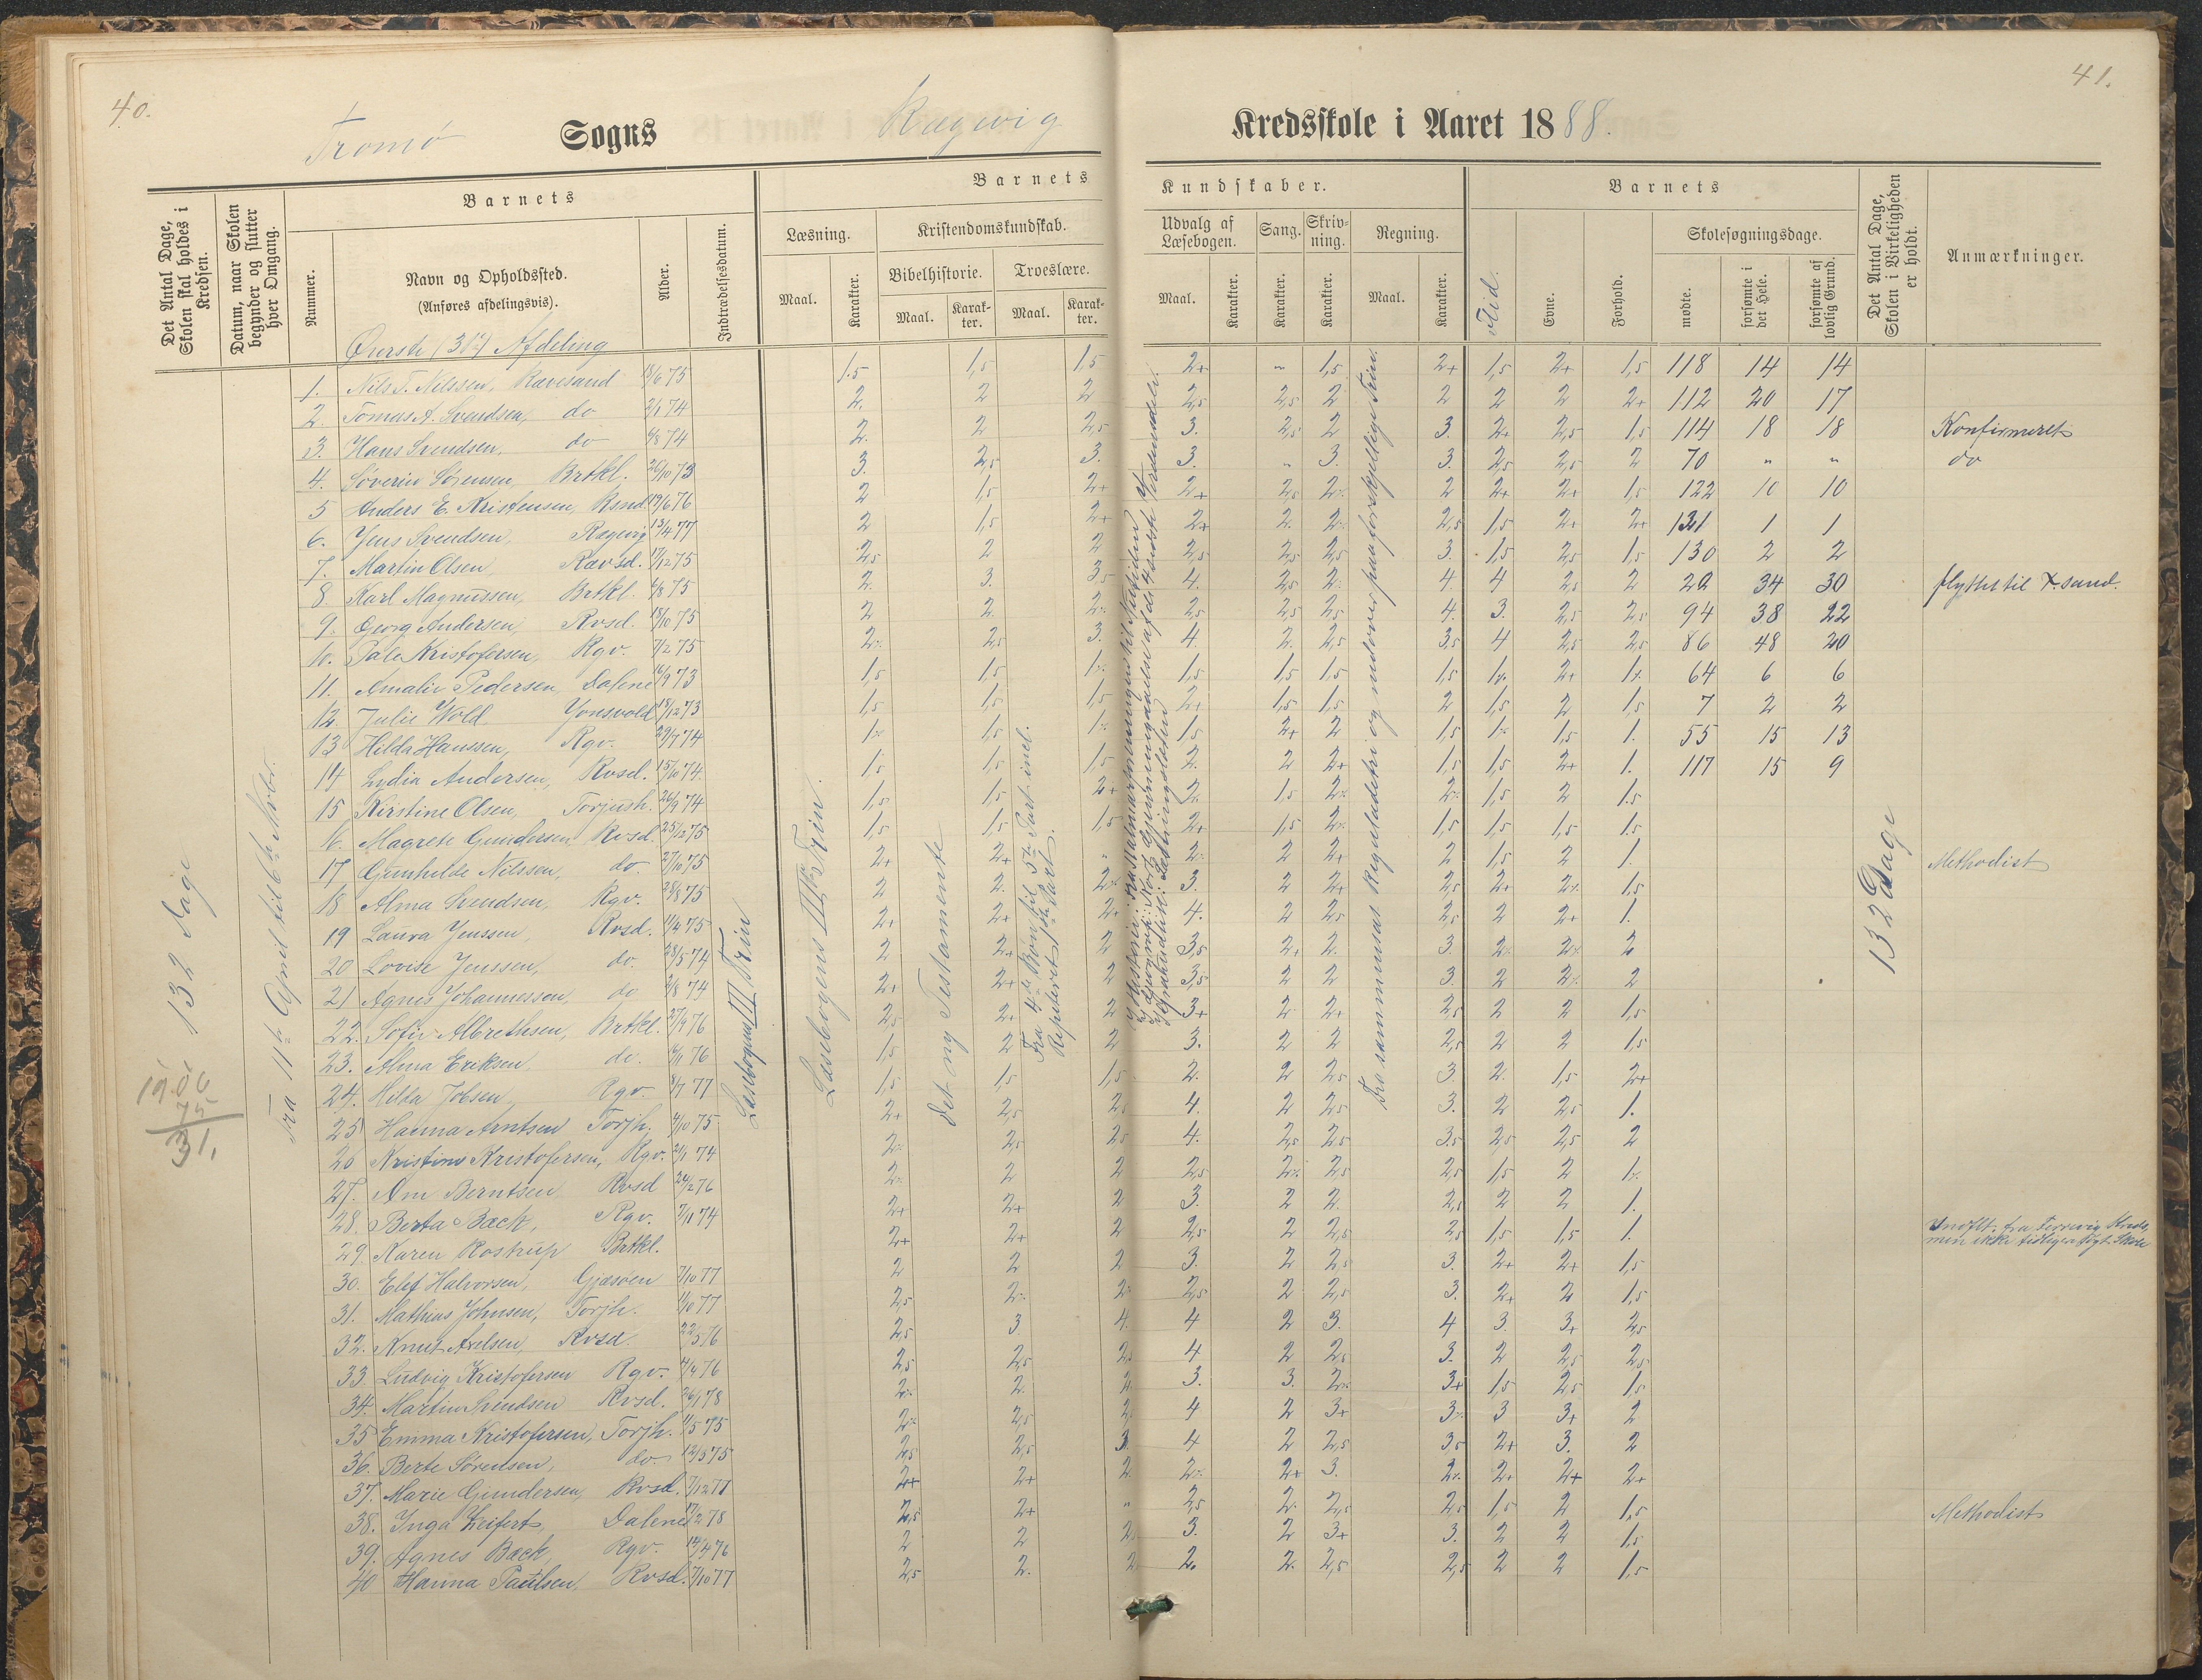 40.
41.
Tromö Sogns Rægevig Kredsskole i Aaret 1888.
Det Antal Dage, Skolen skal holdes i Kredsen.
Datum, naar Skolen begynder og slutter hver Omgang.
Barnets
Nummer.
Navn og Opholdssted.
(Anføres afdelingsvis).
Alder.
Indtrædelsesdatum.
Barnets Kundskaber.
Læsning.
Maal.
Karakter.
Kristendomskundskab.
Bibelhistorie.
Maal.
Karakter.
Troeslære.
Maal.
Karakter.
Udvalg af Læsebogen.
Maal.
Karakter.
Sang.
Karakter.
Skrivning.
Karakter.
Regning.
Maal.
Karakter.
Barnets
Flid.
Evne.
Forhold.
Skolesøgningsdage.
mødte.
forsømte i det Hele.
forsømte af lovlig Grund.
Det Antal Dage, Skolen i Virkeligheden er holdt.
Anmærkninger.
Øverste (3die) Afdeling
1. Nils T. Nilssen, Rævesand 18/6 75 1.5 1,5 1,5 2+ " 1,5 2+ 1,5 2+ 1,5 118 14 14
2. Tomas A. Svendsen, do 2/1 74 2. 2 2 2,5 2,5 2 2 2 2 2+ 112 20 17
3. Hans Svendsen, do 6/8 74 2. 2 2,5 3. 2,5 2 3. 2+ 2,5 1,5 114 18 18 Konfirmeret
4. Söverin Sörensen, Brtkl. 26/10 73 3. 2,5 3. 3. " 3. 3. 2,5 2,5 2 70 " " do
5 Anders E. Kristensen, Rsnd. 19/6 76 2 1,5 2+ 2+ 2,5 2 2 2+ 2+ 1,5 122 10 10
6. Jens Svendsen, Rægevig 13/4 77 2 1,5 2+ 2+ 2. 2 2,5 1,5 2+ 2+ 131 1 1
7. Martin Olsen, Rævsd. 17/12 75 2,5 2 2 2,5 2,5 2,5 3. 1,5 2,5 1,5 130 2 2
8. Karl Magnussen, Brtkl. 6/8 75 2. 3. 3,5 4. 2,5 2 4. 4 2,5 2 22 34 30 flyttet til
9. Georg Andersen, Rvsd. 18/10 75 2 2. 2 2,5 2,5 2,5 4. 3. 2,5 2,5 94 38 22
10. Pale Kristofersen, Rgv. 7/2 75 2 2,5 3. 4. 2. 2,5 3,5 4 2,5 2,5 86 48 20
11. Amalie Pedersen, Dalene 16/9 73 1,5 1,5 1 1,5 1,5 1,5 1,5 1 2+ 1 64 6 6
12. Julie Wold Jonsvold 18/12 73 1,5 1,5 1,5 2+ 1,5 1,5 2 1,5 2 1,5 7 2 2
13 Hilda Hanssen, Rgv. 29/7 74 1 1,5 1 1,5 2+ 2 1,5 1 1,5 1. 55 15 13
14 Lydia Andersen, Rvsd. 15/10 74 1,5 1,5 1,5 2. 2 2+ 1,5 1,5 2+ 1. 117 15 9
15 Kirstine Olsen, Torjush. 26/9 74 1,5 1,5 2+ 2. 1,5 2 2 1,5 2 1.5
16. Magrete Gundersen Rvsd. 25/12 75 1,5 1,5 1,5 2+ 1,5 2 1,5 1,5 1,5 1.5
17 Gunhilde Nilssen, do. 27/10 75 2+ 2+ " 2 2 2+ 2 1,5 2 1. Methodist
18 Alma Svendsen, Rgv. 28/8 75 2 2. 2 3. 2 2+ 2,5 2+ 2 1,5
19 Laura Jenssen, Rvsd. 11/4 75 2+ 2+ 2+ 4. 2 2,5 2,5 2 2+ 1.
20 Lovise Jenssen, do. 28/5 74 2 2+ 2 3,5 2+ 2. 3. 2 2 2
21 Agnes Johannessen, do 2/8 74 2+ 2+ 2 3,5 2 2 3. 2 2 2
22. Sofie Albrethsen, Brtkl. 27/9 76 2,5 2+ 2 3+ 2 2+ 2,5 2 2 1,5
23. Alma Eriksen, do. 6/11 76 1,5 2 2 3. 2 2 2,5 2 2 1,5
24. Hilda Jobsen, Rgv. 8/7 77 1,5 1,5 1,5 2. 2 2,5 3. 2. 1,5 2+
25 Hanna Arntsen Torjh. 4/10 75 2+ 2,5 2,5 4. 2 2,5 3. 2 2,5 1.
26 Kristine Kristofersen, Rgv. 2/1 74 2 2,5 2,5 4. 2,5 2,5 3,5 2,5 2,5 2
27. Am Berntsen Rvsd 24/2 76 2 2 2 2,5 2 2,5 2,5 1,5 2 1
28. Berta Bæck, Rgv. 7/11 74 2+ 2+ 2 3. 2 2. 2,5 2 2 1.
29 Karen Rostrup Brtkl. 2+ 2+ 2 2,5 2 2,5 2,5 1,5 1,5 1. Indflt. fra
men ikke tidligere søgt Skole
30. Elef Halvorsen, Gjæsøen 7/10 77 2 2 2 3. 2 2,5 3. 2+ 2+ 1,5
31. Mathias Johnsen, Torjh. 11/10 77 2,5 2 2 2,5 2 2,5 3. 2+ 2 1,5
32. Knut Axelsen, Rvsd. 22/5 76 2,5 3 4. 4 2 3. 4 3. 3+ 2,5
33 Ludvig Kristofersen Rgv. 4/4 76 2,5 2,5 2 4 2 2,5 3. 2 2,5 2,5
34. Martin Svendsen Rvsd. 26/1 78 2 2. 2 3. 3. 2 3+ 1,5 2,5 1,5
35 Emma Kristofersen, Torjh. 1/5 75 2 2,5 2 4 2 3+ 3 3 3+ 2
36. Berte Sörensen, do 12/3 75 2,5 2,5 3. 4 2 2,5 3,5 2+ 3. 2
37. Marie Gundersen, Rvsd. 7/12 77 2+ 2+ 2. 2 2+ 3. 2 2+ 2+ 2+
38. Inga Keifert, Dalene 17/2 78 2,5 2+ " 2,5 2 2,5 2,5 1,5 2 1,5 Methodist
39. Agnes Bæck, Rgv. 12/4 76 2 2 2 3. 2 3+ 3. 2 2 1,5
40 Hanna Paulsen, Rvsd. 7/10 77 2,5 2. 2 2. 2. 2,5 2,5 2 2 1,5
132 Dage
Fra 11te April til 6te Novbr.
Læsebogens III Trin
Læsebogens IIIdie Trin.
Det ny Testamente
Fra 4de Bøn til 5te Part incl.
Repeteret 1ste Part.
I Historie: Fra Kalmarforeningen til
Fra sammensat Reguladetri og udover paa forskjellige Trin.
132 Dage
75
31.